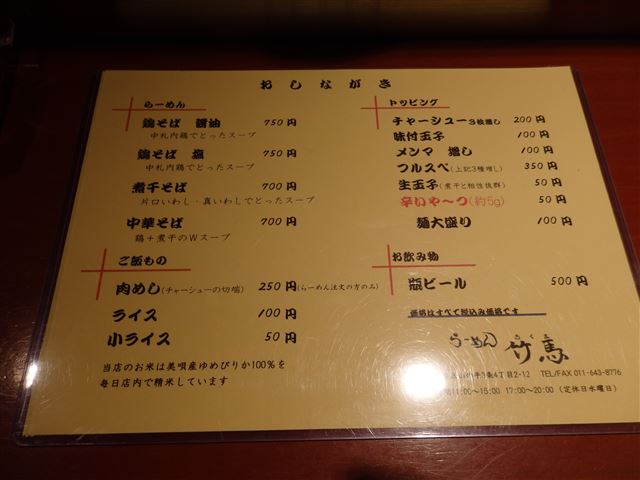 おしながき
らーめん
鶏そば 醤油 750円
中札内鶏でとったスープ
鶏そば 塩 750円
中札内鶏でとったスープ
煮干そば 700円
片口いわし・真いわしでとったスープ
中華そば 700円
鶏+煮干のWスープ
ご飯もの
肉めし(チャーシューの切端) 250円(らーめん注文の方のみ)
ライス 100円
小ライス 50円
当店のお米は美唄産ゆめぴりか100%を
毎日店内で精米しています
トッピング
チャーシュー3枚増し 200円
味付玉子 100円
メンマ 増し 100円
フルスペ(上記3種増し) 350円
生玉子(煮干と相性抜群) 50円
辛いや〜つ(約5g) 50円
麺大盛り 100円
お飲み物
瓶ビール 500円
価格はすべて税込み価格です
らーめん 竹馬
3条4丁目2-12 TEL/FAX 011-643-8776
11:00〜15:00 17:00〜20:00 (定休日水曜日)